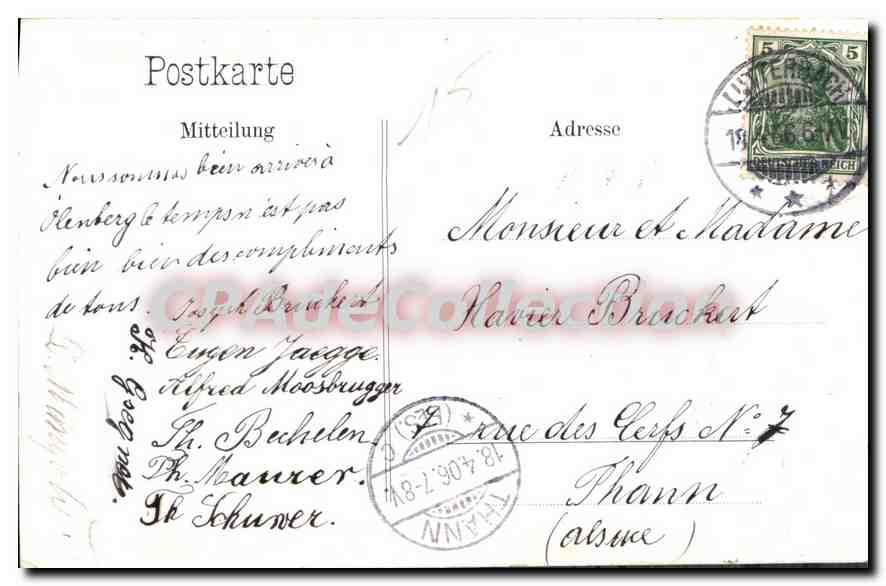 Postkarte
Mitteilung
Adresse
15
Nous sommes bien arrivés à
Ölenberg le temps n'est pas
bien bien des compliments
de tous. Joseph Bruckert
Eugen Jaegge.
Alfred Moosbrugger
Th. Bechelen
Ph. Maurer.
Jh Schuwer.
Monsieur et Madame
Xavier Bruckert
7 rue des Cerfs No 7
Thann
(alsace)
5 5
DEUTSCHES REICH
LUTTERBACH
THANN
18.4.06.7-8V.
(ELS.)
CPAdeCollection.com